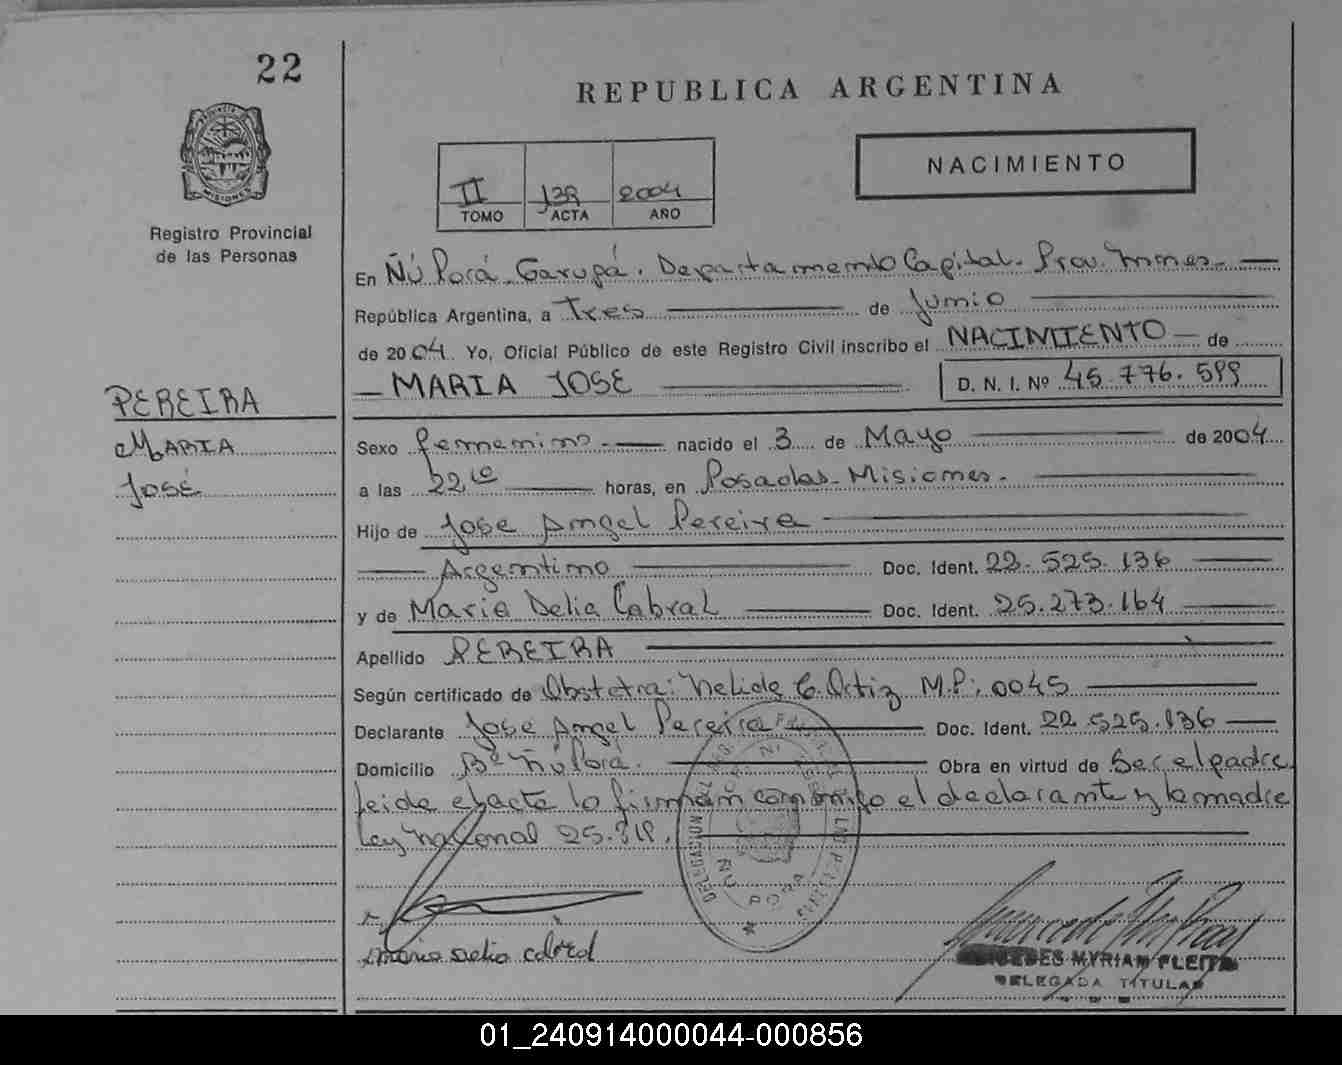 22
REPUBLICA ARGENTINA
NACIMIENTO
II 139 2004
TOMO ACTA AÑO
PROVINCIA DE MISIONES
Registro Provincial
de las Personas
En Ñú Porá. Garupá. Departamento Capital. Prov. Mnes.
República Argentina, a Tres de Junio
de 2004. Yo, Oficial Público de este Registro Civil inscribo el NACIMIENTO de
MARIA JOSE D. N. I. Nº 45.776.599
PEREIRA
MARIA
JOSÉ
Sexo femenino nacido el 3 de Mayo de 2004
a las 22 10 horas, en Posadas - Misiones.
Hijo de Jose Angel Pereira
Argentino Doc. Ident. 22.525.136
y de Maria Delia Cabral Doc. Ident. 25.273.164
Apellido PEREIRA
Según certificado de Obstetra: Nelida C. Ortiz M.P: 0045
Declarante Jose Angel Pereira Doc. Ident. 22.525.136
Domicilio Bº Ñú Porá. Obra en virtud de Ser el padre
leida el acta la firman conmigo el declarante y la madre
Ley Nacional 25.819.
DELEGACION
ÑU PORA
maria delia cabral
MYRIAM FLEITA
DELEGADA TITULAR
01_240914000044-000856